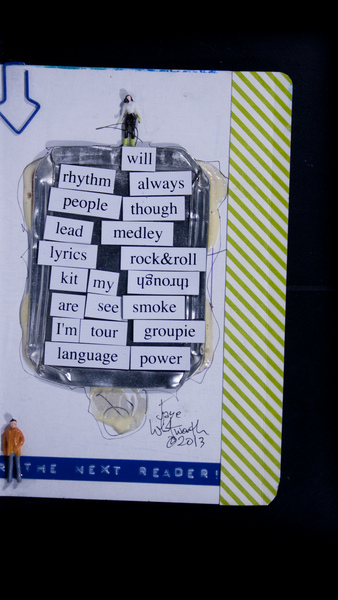 will
rhythm always
people though
lead medley
lyrics rock&roll
kit my through
are see smoke
I'm tour groupie
language power
©2013
THE NEXT READER!